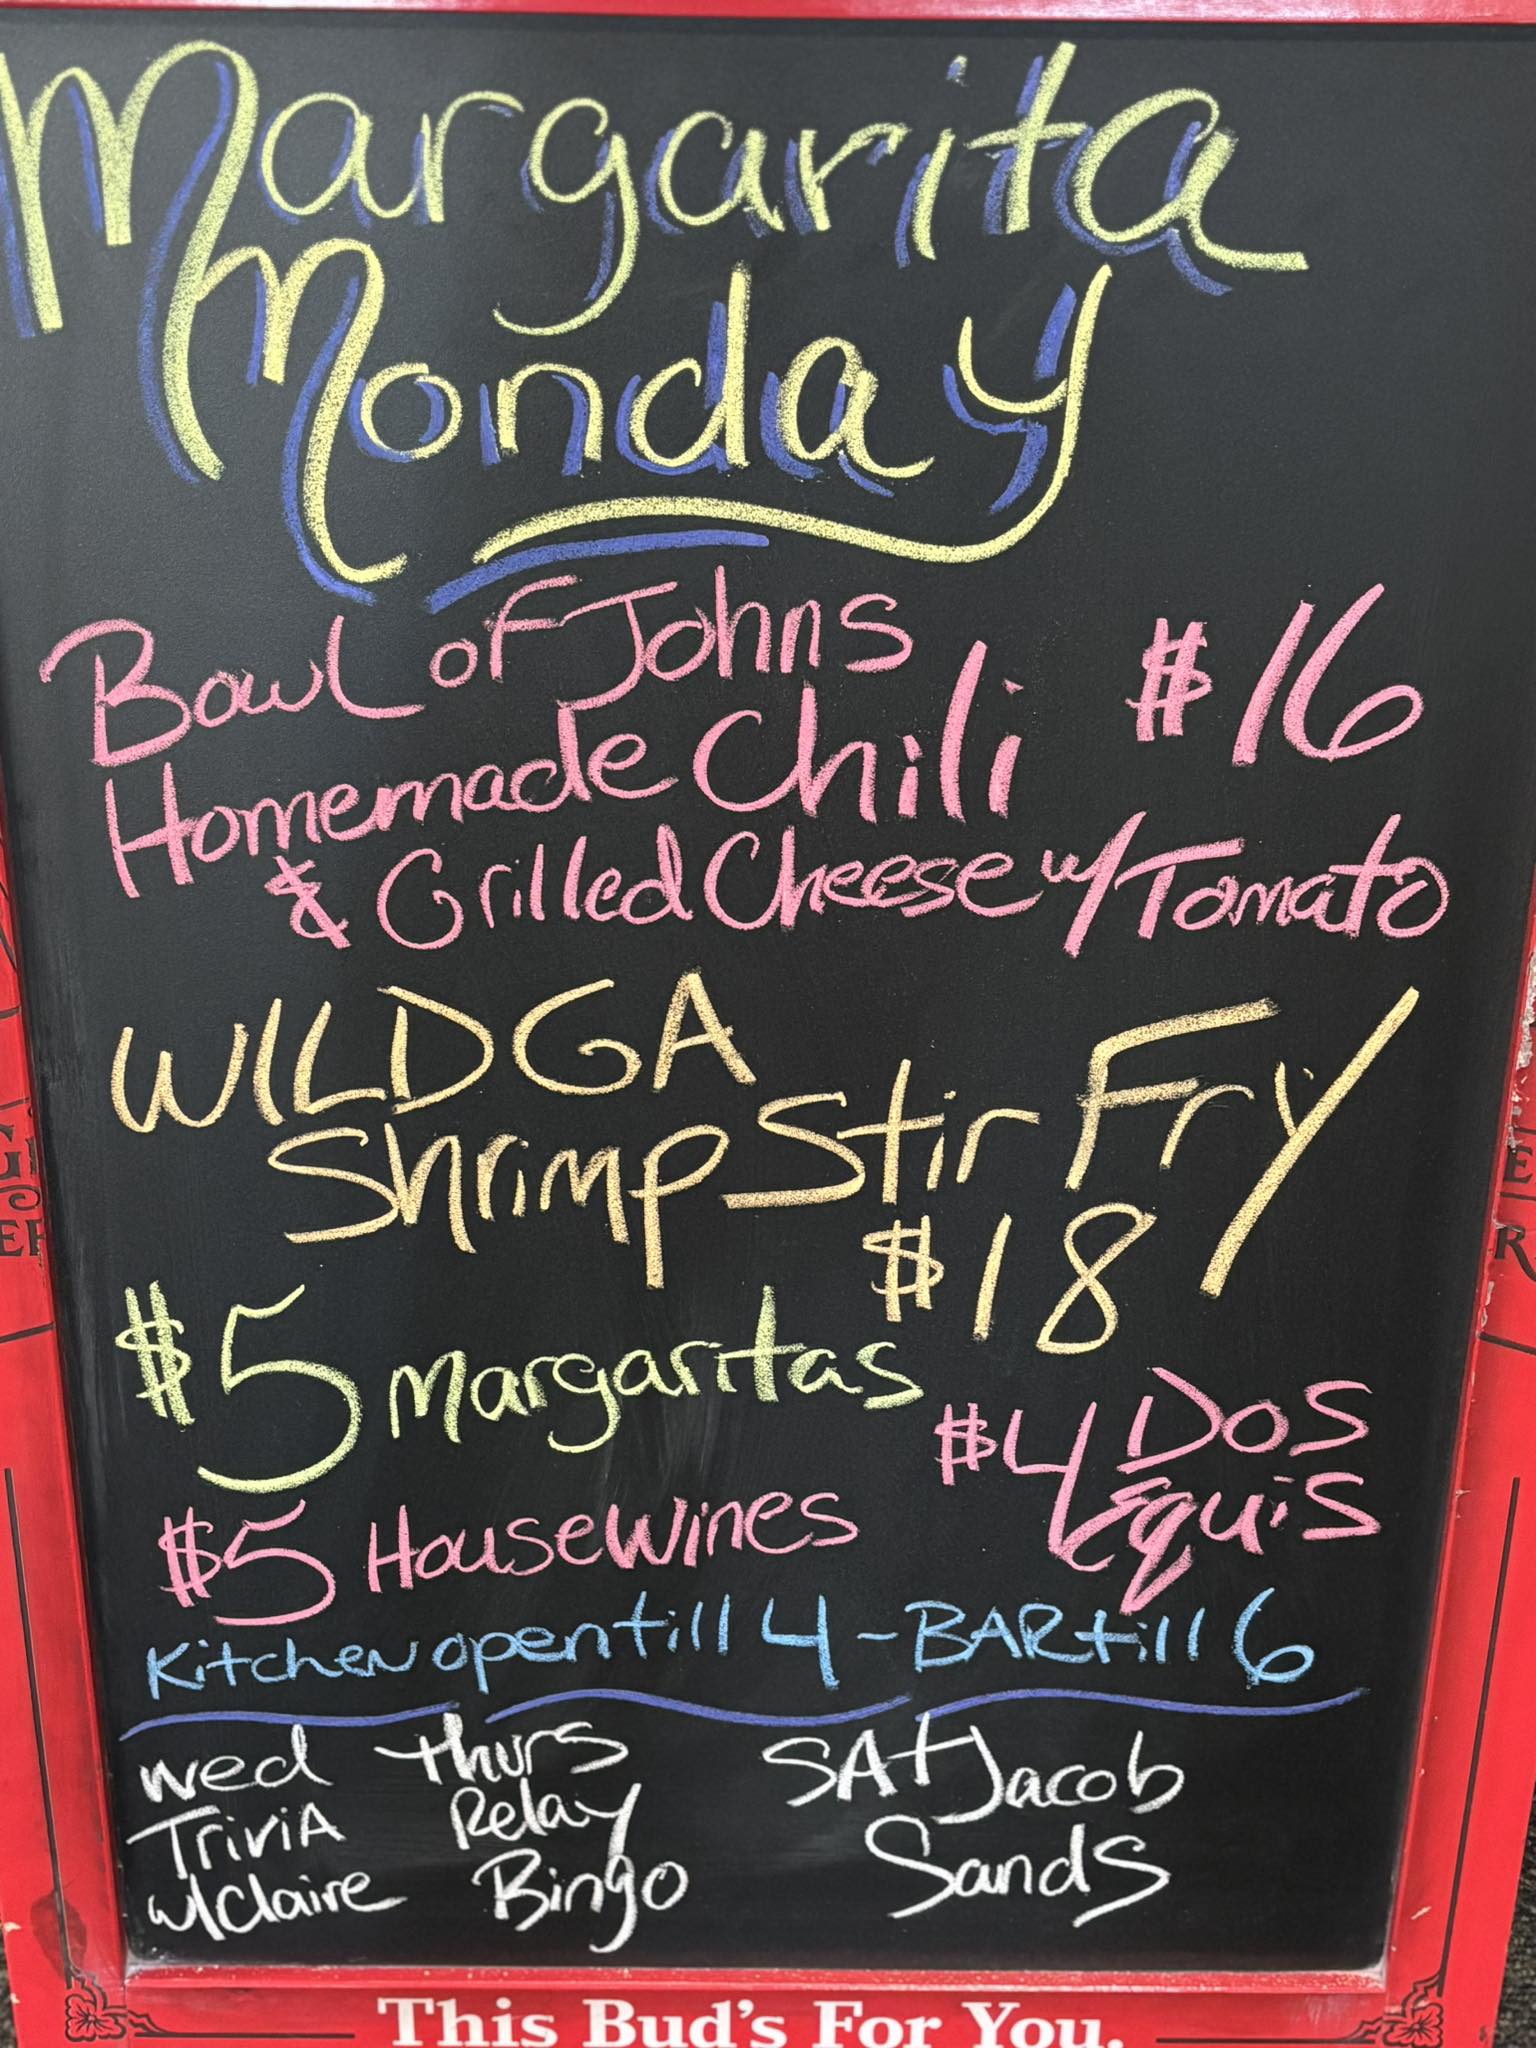 Margarita
Monday
Bowl of Johns
Homemade Chili $16
& Grilled Cheese w/ Tomato
WILD GA
Shrimp Stir Fry
$18
$5 Margaritas
$4 Dos
Equis
$5 House Wines
Kitchen open till 4 - BAR till 6
Wed
Trivia
w/ Claire
Thurs
Relay
Bingo
SAT Jacob
Sands
This Bud's For You.